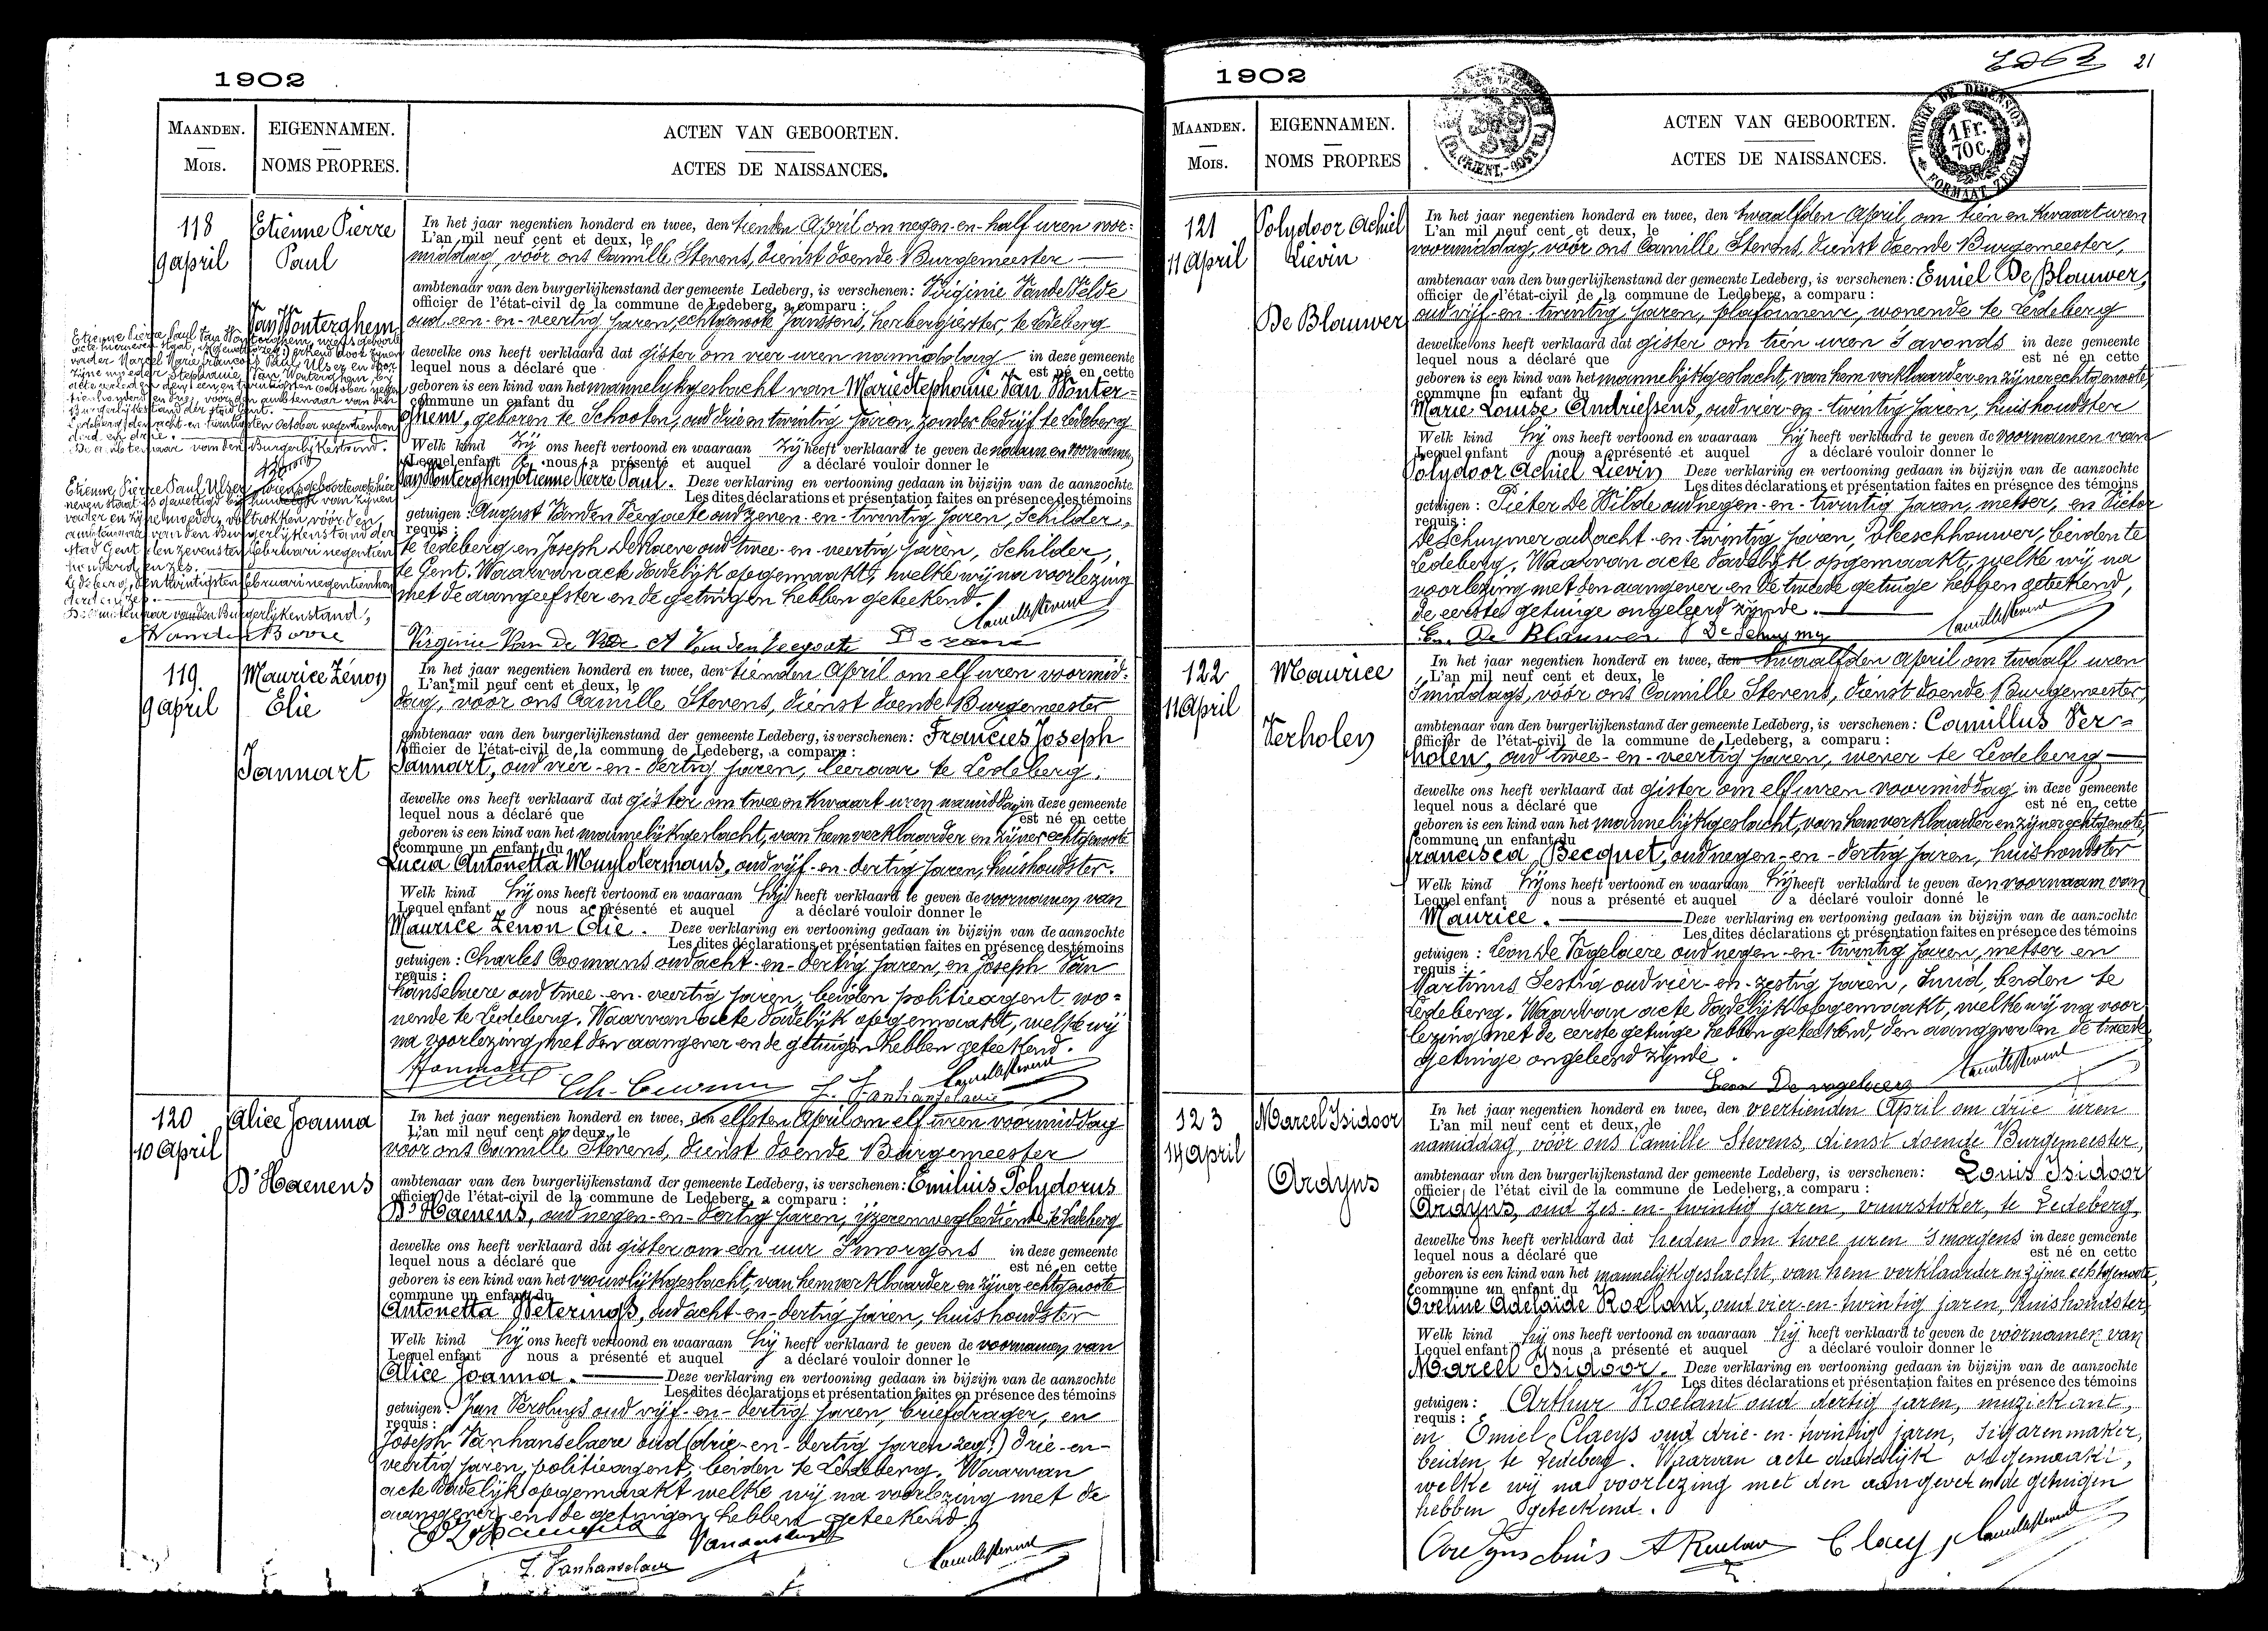 1902
MAANDEN.
MOIS.
EIGENNAMEN.
NOMS PROPRES.
ACTEN VAN GEBOORTEN.
ACTES DE NAISSANCES.
118
9 april
Etienne Pierre
Paul
Van Wonterghem
In het jaar negentien honderd en twee, den tienden April om negen-en-half uren voor-
L'an mil neuf cent et deux, le
middag, vóór ons Camille Stevens, dienst doende Burgemeester
ambtenaar van den burgerlijkenstand der gemeente Ledeberg, is verschenen: Virginie Vande Velde
officier de l'état-civil de la commune de Ledeberg, a comparu :
oud een-en-veertig jaren, echtgenoote Janssens, herbergierster, te Ledeberg
dewelke ons heeft verklaard dat gister om vier uren namiddag in deze gemeente
lequel nous a déclaré que est né en cette
geboren is een kind van het mannelijkgeslacht van Marie Stephanie Van Wonter-
commune un enfant du
ghem, geboren te Schooten, oud drie en twintig jaren, zonder bedrijf te Ledeberg
Welk kind Zij ons heeft vertoond en waaraan Zij heeft verklaard te geven de naam en voornamen
Lequel enfant nous a présenté et auquel a déclaré vouloir donner le
Van Wonterghem Etienne Pierre Paul. Deze verklaring en vertooning gedaan in bijzijn van de aanzochte
Les dites déclarations et présentation faites en présence des témoins
getuigen : August Vanden Veegaete oud zeven-en-twintig jaren, Schilder,
requis :
te Ledeberg en Joseph De Raeve oud twee-en-veertig jaren, Schilder,
te Gent. Waarvan acte dadelijk opgemaakt, welke wij na voorlezing
met de aangeefster en de getuigen hebben geteekend.
Virginie Van De Velde A Vanden Veegaete
Etienne Pierre Paul Van Wonterghem, wiens geboorte
Burgerlijkestand der stad Gent.
Ledeberg, den acht en twintigsten October negentienhon
derd en drie.
De ambtenaar van den Burgerlijkestand.
Etienne Pierre Paul Ulser, wiens geboorteacte hier
neven staat is gewettigd bij huwelijk van zijnen
vader en zijne moeder, voltrokken vóór den
ambtenaar van den Burgerlijkenstand der
stad Gent den zevensten Februari negentien
honderd en zes.
Ledeberg, den twintigsten Februari negentienhon
derd en zes.
De ambtenaar van den Burgerlijkenstand,
119
9 april
Maurice Zénon
Elie
Jannart
In het jaar negentien honderd en twee, den tienden April om elf uren voormid-
L'an mil neuf cent et deux, le
dag, vóór ons Camille Stevens, dienst doende Burgemeester
ambtenaar van den burgerlijkenstand der gemeente Ledeberg, is verschenen: Francies Joseph
officier de l'état-civil de la commune de Ledeberg, a comparu :
Jannart, oud vier-en-dertig jaren, leeraar te Ledeberg,
dewelke ons heeft verklaard dat gister om twee en kwaart uren namiddag in deze gemeente
lequel nous a déclaré que est né en cette
geboren is een kind van het mannelijkgeslacht, van hem verklaarder en zijner echtgenoote
commune un enfant du
Lucia Antonetta Muyldermans, oud vijf-en-dertig jaren, huishoudster.
Welk kind hij ons heeft vertoond en waaraan hij heeft verklaard te geven de voornamen van
Lequel enfant nous a présenté et auquel a déclaré vouloir donner le
Maurice Zénon Elie. Deze verklaring en vertooning gedaan in bijzijn van de aanzochte
Les dites déclarations et présentation faites en présence des témoins
getuigen : Charles Coomans oud acht-en-dertig jaren, en Joseph Van
requis :
hanselaere oud twee-en-veertig jaren, beiden politieagent, wo-
nende te Ledeberg. Waarvan acte dadelijk opgemaakt, welke wij
na voorlezing, met den aangever en de getuigen hebben geteekend.
J. Vanhanselaere
120
10 April
Alice Joanna
D'Haenens
In het jaar negentien honderd en twee, den elfsten April om elf uren voormiddag
L'an mil neuf cent et deux, le
vóór ons Camille Stevens, dienst doende Burgemeester
ambtenaar van den burgerlijkenstand der gemeente Ledeberg, is verschenen: Emilius Polydorus
officier de l'état-civil de la commune de Ledeberg, a comparu :
D'Haenens, oud negen-en-dertig jaren, ijzerenwegbediende te Ledeberg
dewelke ons heeft verklaard dat gister om een uur 's morgens in deze gemeente
lequel nous a déclaré que est né en cette
geboren is een kind van het vrouwlijkgeslacht, van hem verklaarder en zijner echtgenoote
commune un enfant du
Antonetta Weterings, oud acht-en-dertig jaren, huishoudster
Welk kind hij ons heeft vertoond en waaraan hij heeft verklaard te geven de voornamen van
Lequel enfant nous a présenté et auquel a déclaré vouloir donner le
Alice Joanna. Deze verklaring en vertooning gedaan in bijzijn van de aanzochte
Les dites déclarations et présentation faites en présence des témoins
getuigen : Jan Versluys oud vijf-en-dertig jaren, briefdrager, en
requis :
Joseph Vanhanselaere oud (drie-en-dertig jaren zeg:) drie-en-
veertig jaren, politieagent, beiden te Ledeberg. Waarvan
acte dadelijk opgemaakt welke wij na voorlezing met de
aangever en de getuigen hebben geteekend.
J. Vanhanselaere
1902
21
MAANDEN.
MOIS.
EIGENNAMEN.
NOMS PROPRES
ACTEN VAN GEBOORTEN.
ACTES DE NAISSANCES.
TIMBRE DE DIMENSION
1 Fr.
70 c.
FORMAAT ZEGEL
121
11 April
Polydoor Achiel
Lievin
De Blauwer
In het jaar negentien honderd en twee, den twaalfden April, om tien en kwaart uren
L'an mil neuf cent et deux, le
voormiddag, vóór ons Camille Stevens, dienst doende Burgemeester,
ambtenaar van den burgerlijkenstand der gemeente Ledeberg, is verschenen: Emiel De Blauwer,
officier de l'état-civil de la commune de Ledeberg, a comparu :
oud vijf-en-twintig jaren, plafonneur, wonende te Ledeberg
dewelke ons heeft verklaard dat gister om tien uren 's avonds in deze gemeente
lequel nous a déclaré que est né en cette
geboren is een kind van het mannelijkgeslacht, van hem verklaarder en zijner echtgenoote
commune un enfant du
Marie Louise Andriessens, oud vier-en-twintig jaren, huishoudster
Welk kind hij ons heeft vertoond en waaraan hij heeft verklaard te geven de voornamen van
Lequel enfant nous a présenté et auquel a déclaré vouloir donner le
Polydoor Achiel Lievin Deze verklaring en vertooning gedaan in bijzijn van de aanzochte
Les dites déclarations et présentation faites en présence des témoins
getuigen : Pieter De Wilde oud negen-en-twintig jaren, metser, en Victor
requis :
De Schuymer oud acht-en-twintig jaren, Vleeschhouwer, beiden te
Ledeberg. Waarvan acte dadelijk opgemaakt, welke wij na
voorlezing met den aangever en de tweede getuige hebben geteekend,
de eerste getuige ongeleerd zijnde.
Em. De Blauwer V De Schuymer
122
11 April
Maurice
Verholen
In het jaar negentien honderd en twee, den twaalfden April om twaalf uren
L'an mil neuf cent et deux, le
's middags, vóór ons Camille Stevens, dienst doende Burgemeester,
ambtenaar van den burgerlijkenstand der gemeente Ledeberg, is verschenen: Camillus Ver-
officier de l'état-civil de la commune de Ledeberg, a comparu :
holen, oud twee-en-veertig jaren, wever te Ledeberg
dewelke ons heeft verklaard dat gister om elf uren voormiddag in deze gemeente
lequel nous a déclaré que est né en cette
geboren is een kind van het mannelijkgeslacht, van hem verklaarder en zijner echtgenoote,
commune un enfant du
Francisca Becquet, oud negen-en-dertig jaren, huishoudster
Welk kind hij ons heeft vertoond en waaraan hij heeft verklaard te geven den voornaam van
Lequel enfant nous a présenté et auquel a déclaré vouloir donné le
Maurice. Deze verklaring en vertooning gedaan in bijzijn van de aanzochte
Les dites déclarations et présentation faites en présence des témoins
getuigen : Leon De Vogelaere oud negen-en-twintig jaren, metser en
requis :
Martinus Sestig oud vier-en-zestig jaren, Smid, beiden te
Ledeberg. Waarvan acte dadelijk opgemaakt, welke wij na voor
lezing met de eerste getuige hebben geteekend, den aangever en de tweede
getuige ongeleerd zijnde.
Leon De vogelaere
123
14 April
Marcel Isidoor
Ardyns
In het jaar negentien honderd en twee, den veertienden April om drie uren
L'an mil neuf cent et deux, le
namiddag, vóór ons Camille Stevens, dienst doende Burgemeester,
ambtenaar van den burgerlijkenstand der gemeente Ledeberg, is verschenen: Louis Isidoor
officier de l'état civil de la commune de Ledeberg, a comparu :
Ardyns, oud zes-en-twintig jaren, vuurstoker, te Ledeberg,
dewelke ons heeft verklaard dat heden om twee uren 's morgens in deze gemeente
lequel nous a déclaré que est né en cette
geboren is een kind van het mannelijk geslacht, van hem verklaarder en zijner echtgenoote,
commune un enfant du
Eveline Adelaïde Roelant, oud vier-en-twintig jaren, huishoudster,
Welk kind hij ons heeft vertoond en waaraan hij heeft verklaard te geven de voornamen van
Lequel enfant nous a présenté et auquel a déclaré vouloir donner le
Marcel Isidoor. Deze verklaring en vertooning gedaan in bijzijn van de aanzochte
Les dites déclarations et présentation faites en présence des témoins
getuigen : Arthur Roelant oud dertig jaren, muzickant,
requis :
en Emiel Claeys oud drie-en-twintig jaren, Sigarenmaker,
beiden te Ledeberg. Waarvan acte dadelijk opgemaakt,
welke wij na voorlezing met den aangever en de getuigen
hebben geteekend.